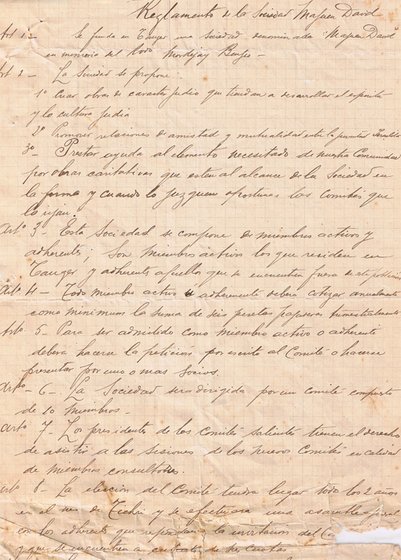 Reglamento de la Sociedad Maguen David
Art 1 - Se funda en Tanger una sociedad denominada "Maguen David"
en memoria del Rabo Mordejay Bengio -
Art 2 - La sociedad se propone.
1º Crear obras de caracter judio que tiendan a desarrollar el espiritu
y la cultura judia
2º Promover relaciones de amistad y mutualidad entre la juventud Israelita
3º - Prestar ayuda al elemento necesitado de nuestra Comunidad
por obras caritativas que esten al alcance de la Sociedad en
la forma y cuando lo juzguen oportuno los Comités que
la rijan.
Artº 3 - Esta Sociedad se compone de miembros activos y
adherentes; Son miembros activos los que residen en
Tanger y adherentes aquellos que se encuentren fuera de esta poblacion
Artº 4 - Todo miembro activo o adherente debera cotizar anualmente
como minimum la suma de seis pesetas pagaderas trimestralmente
Artº 5 - Para ser admitido como miembro activo o adherente
debera hacerse la peticion por escrito al Comité o hacerse
presentar por uno o mas Socios.
Artº - 6 - La Sociedad sera dirigida por un comité compuesto
de 10 miembros -
Artº 7 - Los presidentes de los Comités salientes tienen el derecho
de asistir a las sesiones de los nuevos Comités en calidad
de miembros consultores.
Artº 8 - La eleccion del Comité tendra lugar todos los 2 años
en el mes de Tichri y se efectuara una asamblea
con los adherentes que respondan a la invitacion del
y que se encuentren